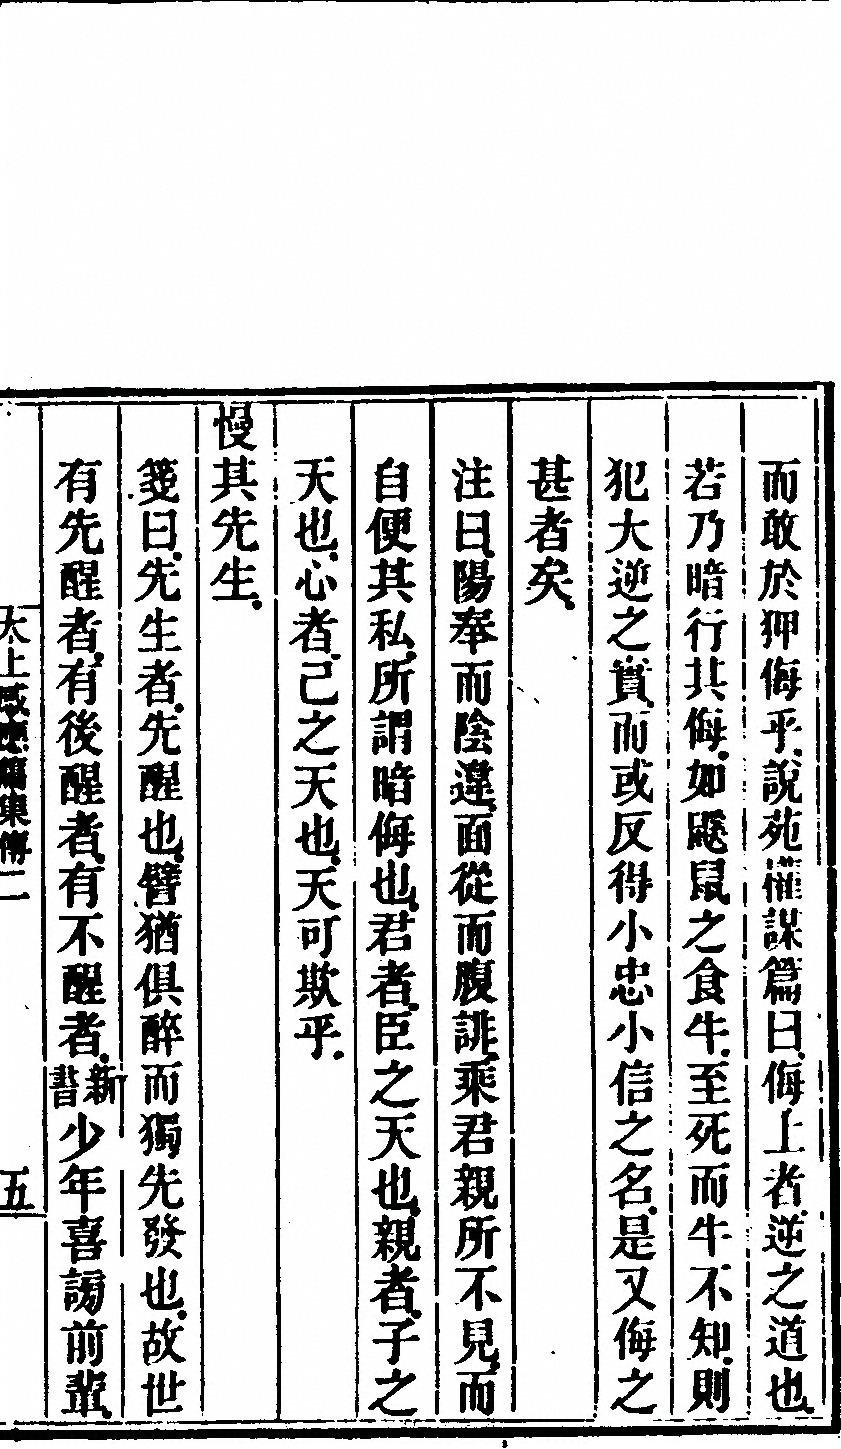 而敢於狎侮乎說苑權謀篇曰侮上者逆之道也
若乃暗行其侮如鼷鼠之食牛至死而牛不知則
犯大逆之實而或反得小忠小信之名是又侮之
甚者矣
注曰陽奉而陰違面從而腹誹乘君親所不見而
自便其私所謂暗侮也君者臣之天也親者子之
天也心者己之天也天可欺乎
慢其先生
箋曰先生者先醒也譬猶俱醉而獨先發也故世
有先醒者有後醒者有不醒者新書少年喜謗前輩
太上感應篇集傳二
五